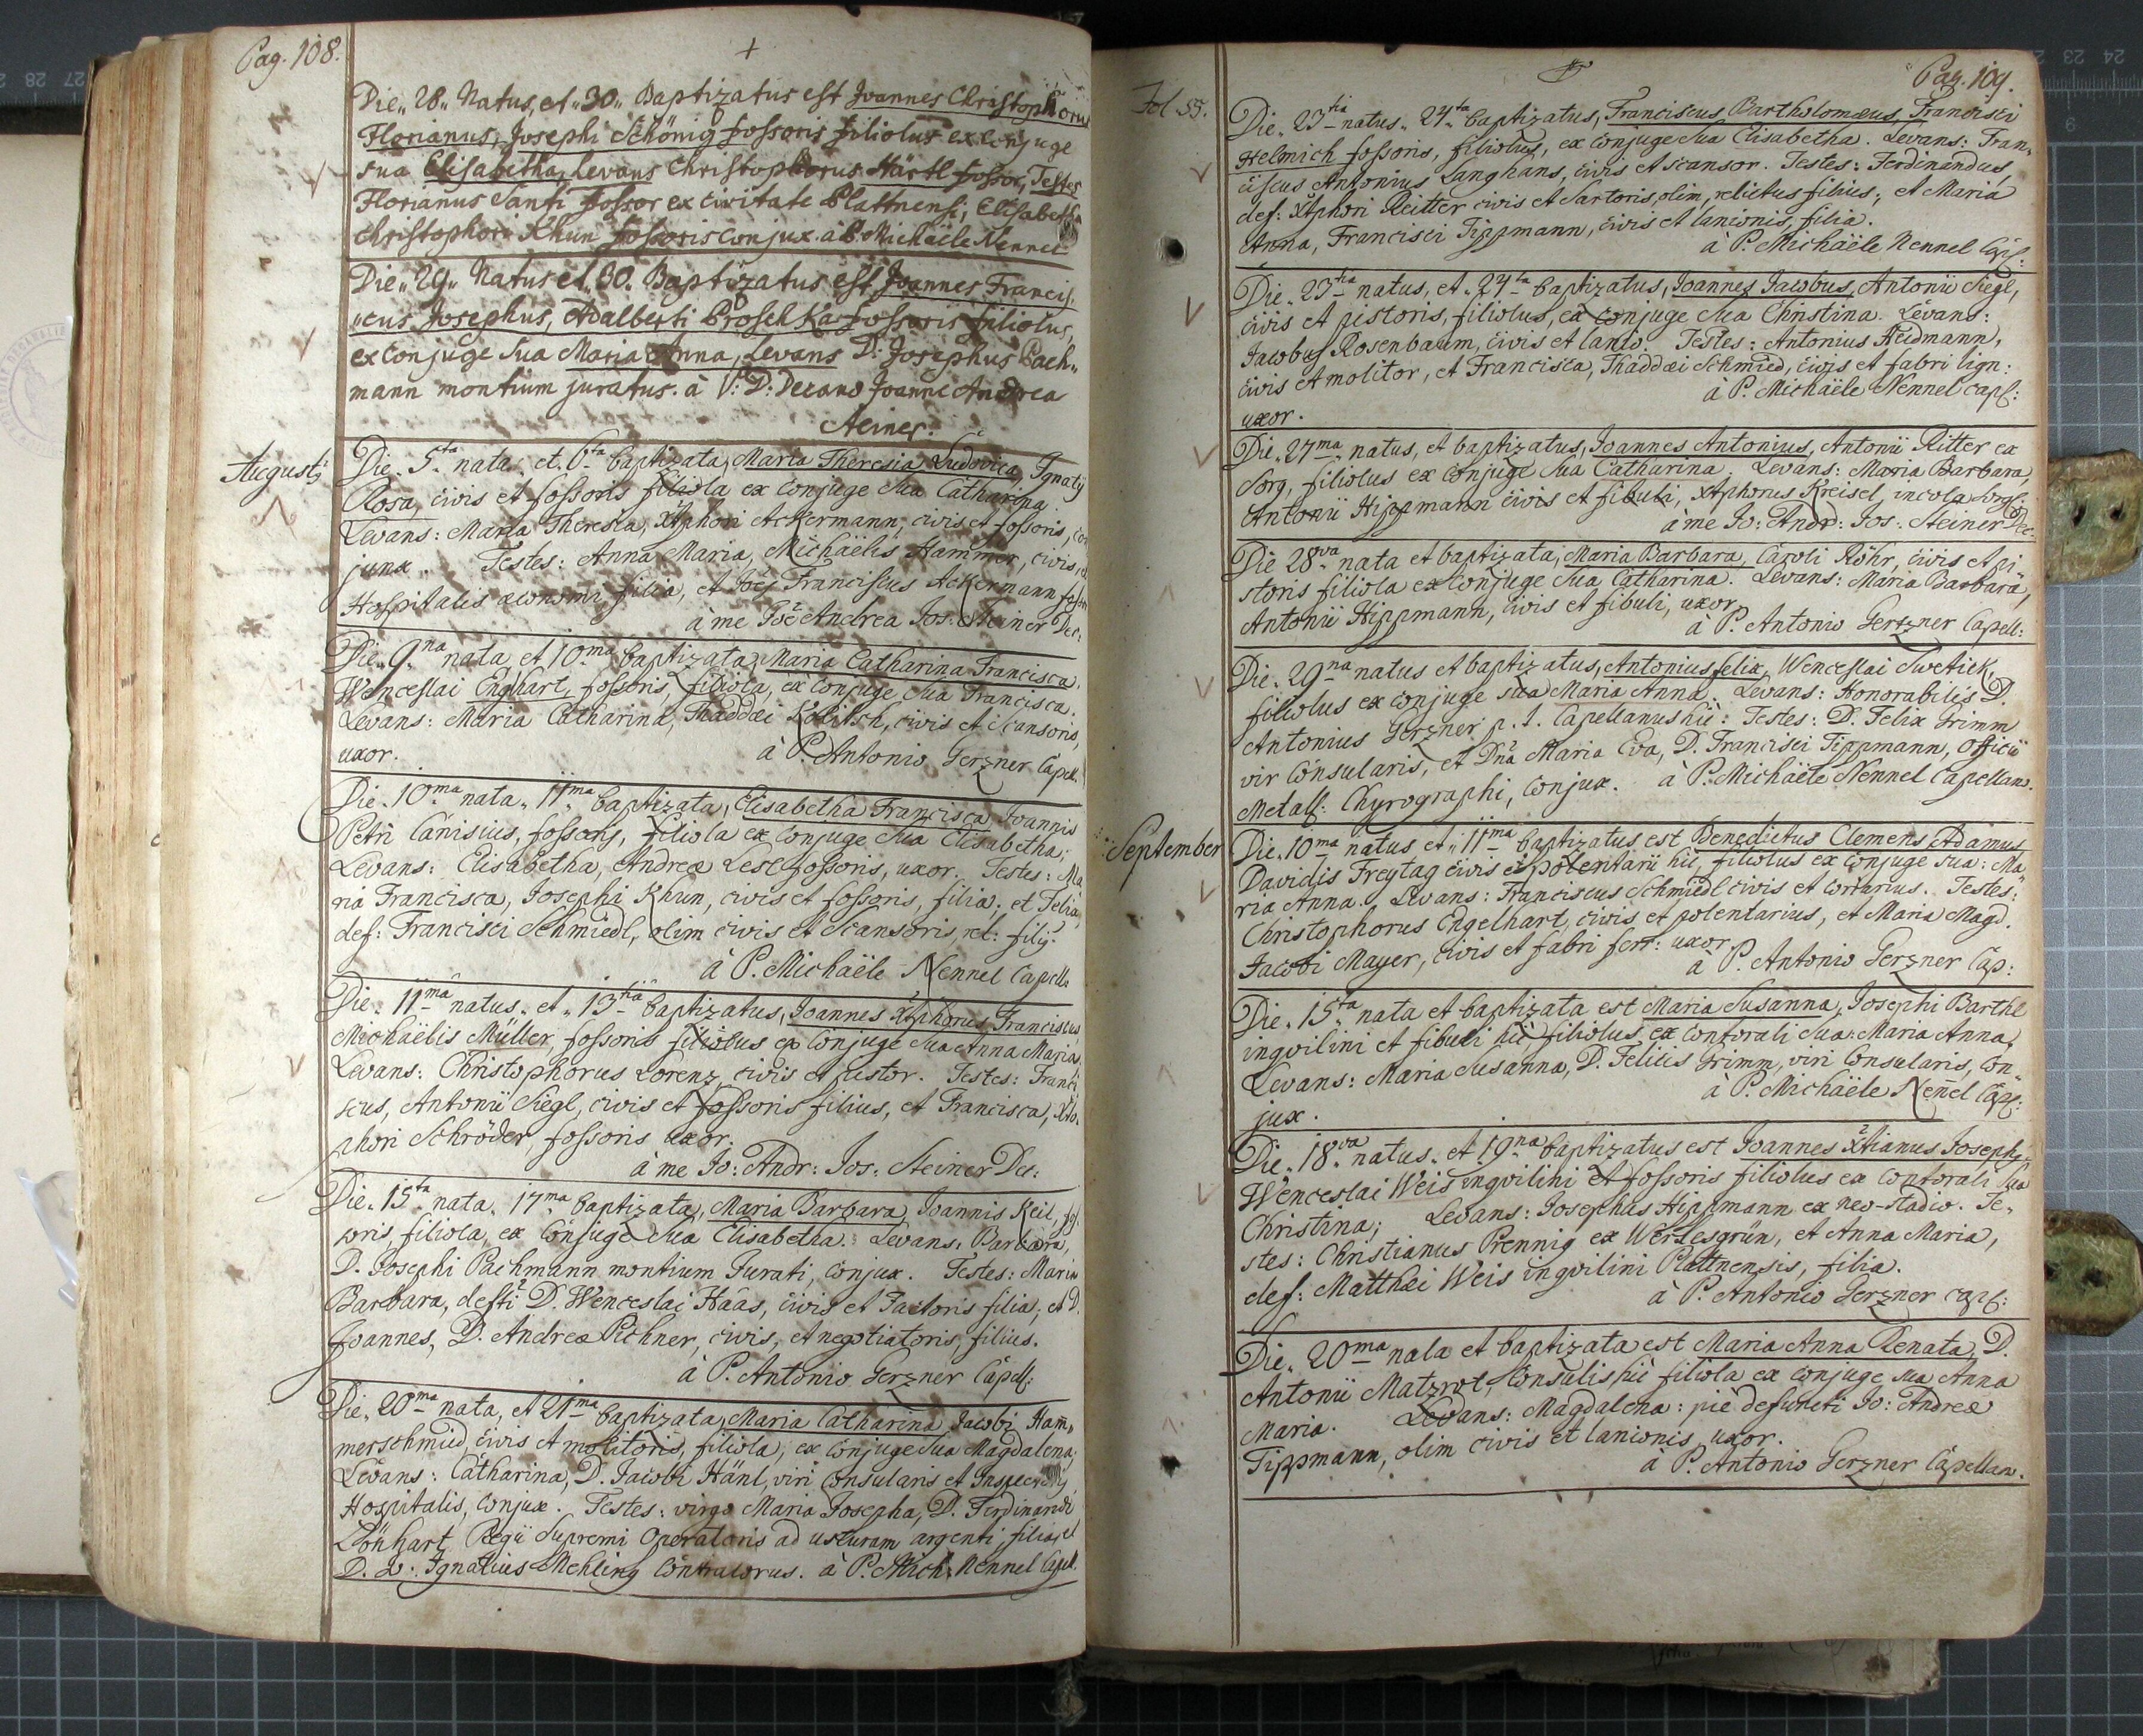 Pag. 108.
Die„ 28„ Natus, et „30„ Baptizatus est Joannes Christophorus
Florianus, Josephi Schönig fossoris filiolus ex conjuge
sua Elisabetha, Levans Christophorus Härtl fossor, Testes
Florianus Santi fossor ex civitate Plattnensi, Elisabetha
Christophori Khun fossoris conjux. à P. Michaële Nennel
Die„ 29„ Natus et „30. Baptizatus est Joannes Francis„
„cus Josephus, Adalberti Proschka fossoris filiolus,
ex conjuge sua Maria Anna, Levans D: Josephus Pach„
mann montium juratus. à V: D: Decano Joanne Andrea
Steiner.
Augusti
Die„ 5ta nata„ et„ 6ta baptizata, Maria Theresia Ludovica, Ignatij
Rosa, civis et fossoris filiola ex conjuge sua Catharina.
Levans: Maria Theresia, Xtphori Ackermann, civis et fossoris, con
junx. Testes: Anna Maria, Michaëlis Hammer, civis, et
Hospitalis œconomi filia, et Joës Franciscus Ackermann fossor
à me Joë Andrea Jos: Steiner Dec:
Die„ 9na nata et 10ma baptizata, Maria Catharina Francisca,
Wenceslai Englhart, fossoris, filiola, ex conjuge sua Francisca.
Levans: Maria Catharina, Thaddæi Kolitsch, civis et scansoris,
uxor. à P. Antonio Gerzner Capell:
Die„ 10ma nata„ 11ma baptizata, Elisabetha Francisca, Joannis
Petri Canisius, fossoris, filiola ex conjuge sua Elisabetha;
Levans: Elisabetha, Andreæ Lesl fossoris, uxor. Testes: Ma
ria Francisca, Josephi Khun, civis et fossoris, filia; et Felix,
def: Francisci Schmiedl, olim civis et Scansoris, rel: filij.
à P. Michaële Nennel Capell:
Die„ 11ma natus„ et„ 13tia baptizatus, Joannes Xtphorus Franciscus,
Michaëlis Müller, fossoris filiolus ex conjuge sua Anna Maria.
Levans: Christophorus Lorenz, civis et pistor. Testes: Franci
scus, Antonii Siegl, civis et fossoris filius, et Francisca, Xto
phori Schröder, fossoris uxor.
à me Jo: Andr: Jos: Steiner Dec:
Die„ 15ta nata„ 17ma baptizata, Maria Barbara, Joannis Keil, fos
soris, filiola, ex conjuge sua Elisabetha. Levans: Barbara,
D. Josephi Pachmann montium Jurati, conjux. Testes: Maria
Barbara, defti D. Wenceslai Haas, civis et Factoris filia; et D.
Joannes, D. Andreæ Pichner, civis, et negotiatoris, filius.
à P. Antonio Gerzner Capell:
Die„ 20ma nata, et 21ma baptizata, Maria Catharina Jacobi Ham„
merschmied, civis et molitoris, filiola, ex conjuge sua Magdalena;
Levans: Catharina, D. Jacobi Hänl, viri consularis et Inspectoris
Hospitalis, conjux. Testes: virgo Maria Josepha, D. Ferdinandi
Lönhart Regii Supremi Operatoris ad usturam argenti, filia, et
D. D: Ignatius Mehling Contralorus. à P. Mich: Nennel Capell.
Fol 55.
Pag. 109.
Die„ 23tia natus„ 24ta baptizatus, Franciscus Bartholomæus, Francisci
Helmich fossoris, filiolus, ex conjuge sua Elisabetha. Levans: Fran„
ciscus Antonius Langhans, civis et scansor. Testes: Ferdinandus,
def: Xtphori Reitter civis et Sartoris, olim, relictus filius; et Maria
Anna, Francisci Tippmann, civis et lanionis, filia.
à P. Michaële Nennel Cap:
Die„ 23tia natus, et„ 24ta baptizatus, Joannes Jacobus, Antonii Siegl,
civis et pistoris, filiolus, ex conjuge sua Christina. Levans:
Jacobus Rosenbaum, civis et lanio. Testes: Antonius Heidmann,
civis et molitor, et Francisca, Thaddæi Schmied, civis et fabri lign:
uxor. à P. Michaële Nennel Capl:
Die„ 27ma natus, et baptizatus, Joannes Antonius, Antonii Ritter ex
Sorg, filiolus ex conjuge sua Catharina. Levans: Maria Barbara,
Antonii Hippmann civis et fibuli, Xtphorus Kreisel, incola Sorg:
à me Jo: Andr: Jos: Steiner Dec:
Die 28va nata et baptizata, Maria Barbara, Caroli Röhr, civis et pi„
storis filiola ex conjuge sua Catharina. Levans: Maria Barbara,
Antonii Hippmann, civis et fibuli, uxor.
à P. Antonio Gerzner Capell:
Die„ 29na natus et baptizatus, Antonius Felix, Wenceslai Swetick,
filiolus ex conjuge sua Maria Anna. Levans: Honorabilis D.
Antonius Gerzner p. t. Capellanus hic: Testes: D. Felix Grimm
vir Consularis, et Dna Maria Eva, D. Francisci Tippmann, Officii
Metall: Chyrographi, conjux. à P. Michaële Nennel Capellano.
September
Die„ 10ma natus et„ 11ma baptizatus est Benedictus Clemens Adamus
Davidis Freytag civis et polentarii hic, filiolus ex conjuge sua: Ma
ria Anna. Levans: Franciscus Schmiedl civis et coriarius. Testes:
Christophorus Engelhart, civis et polentarius, et Maria Magd.
Jacobi Mayer, civis et fabri ferr: uxor.
à P. Antonio Gerzner Cap:
Die„ 15ta nata et baptizata est Maria Susanna, Josephi Barthl
inqvilini et fibuli hic, filiolus ex contorali sua: Maria Anna.
Levans: Maria Susanna, D. Felicis Grimm, viri Consularis, con„
jux. à P. Michaële Nennel Capl:
Die„ 18va natus„ et 19na baptizatus est Joannes Xtianus Josephg
Wenceslai Weis inqvilini et fossoris filiolus ex contorali sua
Christina; Levans: Josephus Hippmann ex neo-stadio. Te„
stes: Christianus Prennig ex Werlesgrün, et Anna Maria,
def: Matthæi Weis inqvilini Plattnensis, filia.
à P. Antonio Gerzner capl:
Die„ 20ma nata et baptizata est Maria Anna Renata, D.
Antonii Matzrot, Consulis hic filiola ex conjuge sua Anna
Maria. Levans: Magdalena: piè defuncti Jo: Andreæ
Tippmann, olim civis et lanionis, uxor.
à P. Antonio Gerzner Capellan.